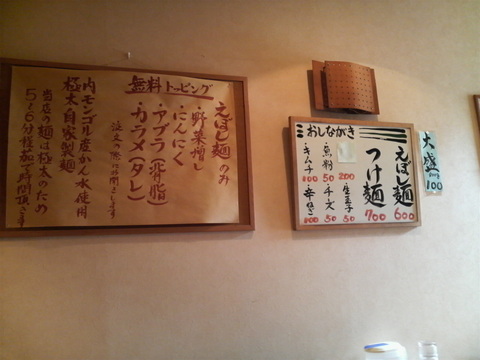 無料トッピング
えぼし麺のみ
・野菜増し
・にんにく
・アブラ(背脂)
・カラメ(タレ)
注文の際にお聞きします
内モンゴル産かん水使用
極太自家製麺
当店の麺は極太のため
5〜6分程茹で時間頂きます
おしながき
えぼし麺 600
つけ麺 700
・魚粉 50
・生玉子 50
・チーズ 50
・キムチ 100
・辛ねぎ 100
200
大盛
100